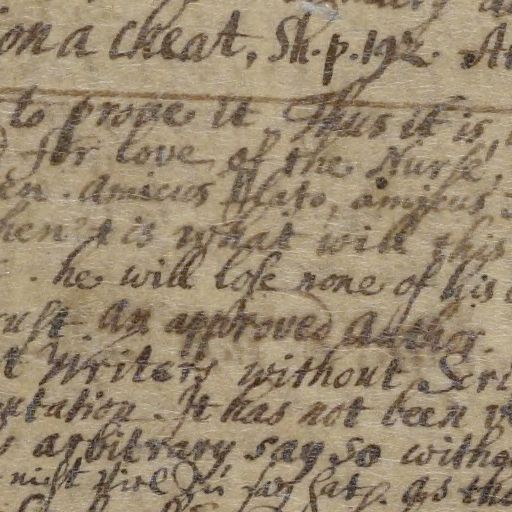 on a cheat, Sh. p. 192. An
to prove it Thus it is
for love of the Nurse,
en. Amicus Plato, amicus
hen 't is what will this
he will lose none of his
rust An approved Author
t Writers without Scri
utation. It has not been
arbitrary say so witho
as tho